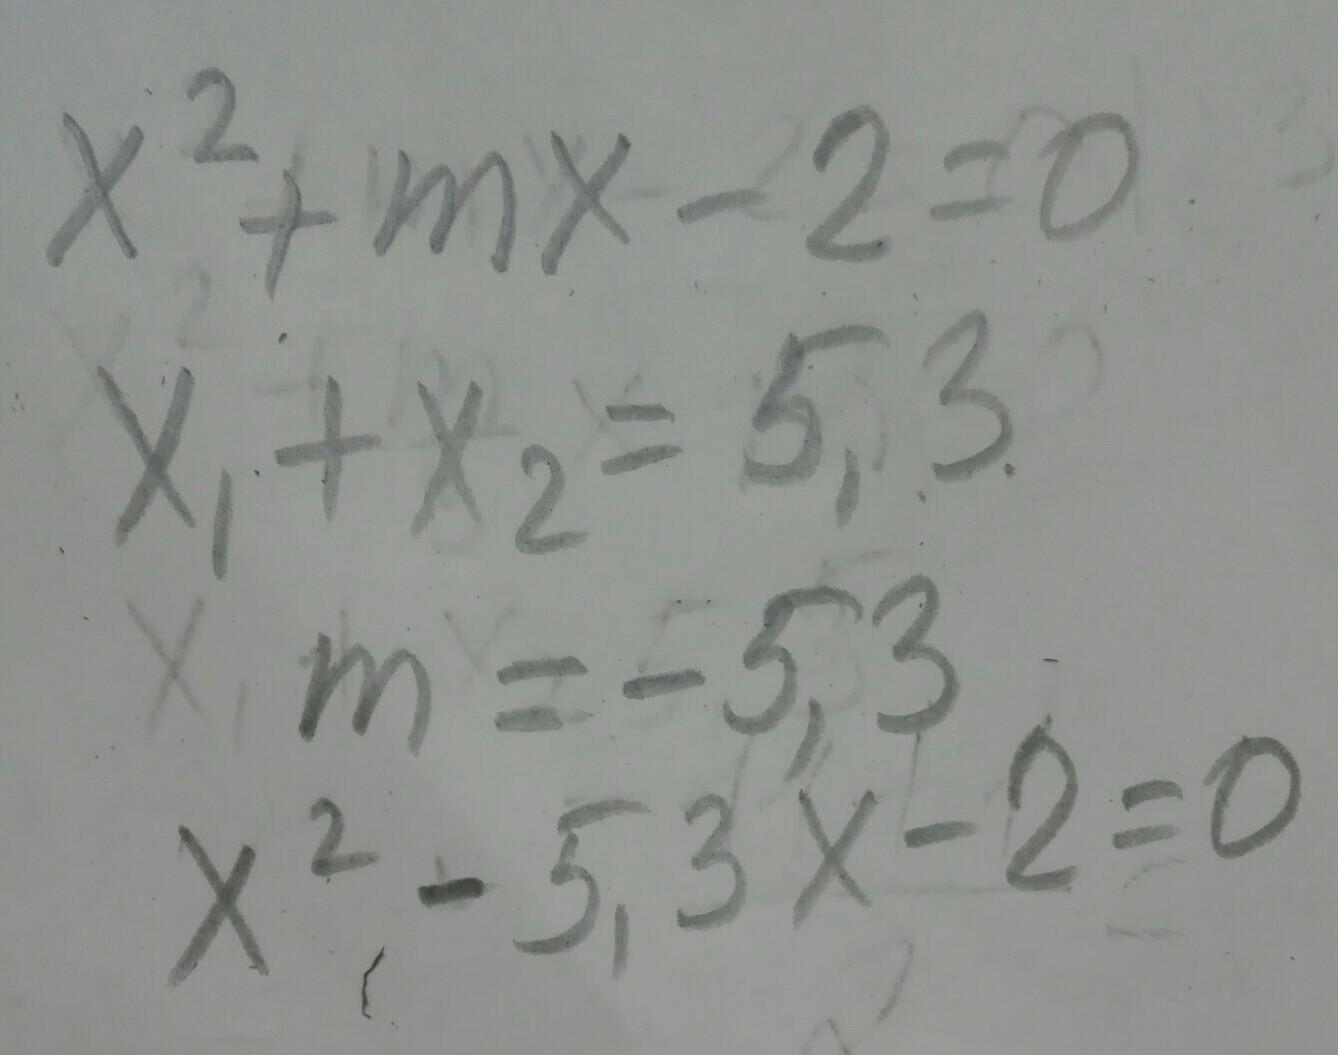 x² + mx - 2 = 0
x₁ + x₂ = 5,3
m = -5,3
x² - 5,3x - 2 = 0